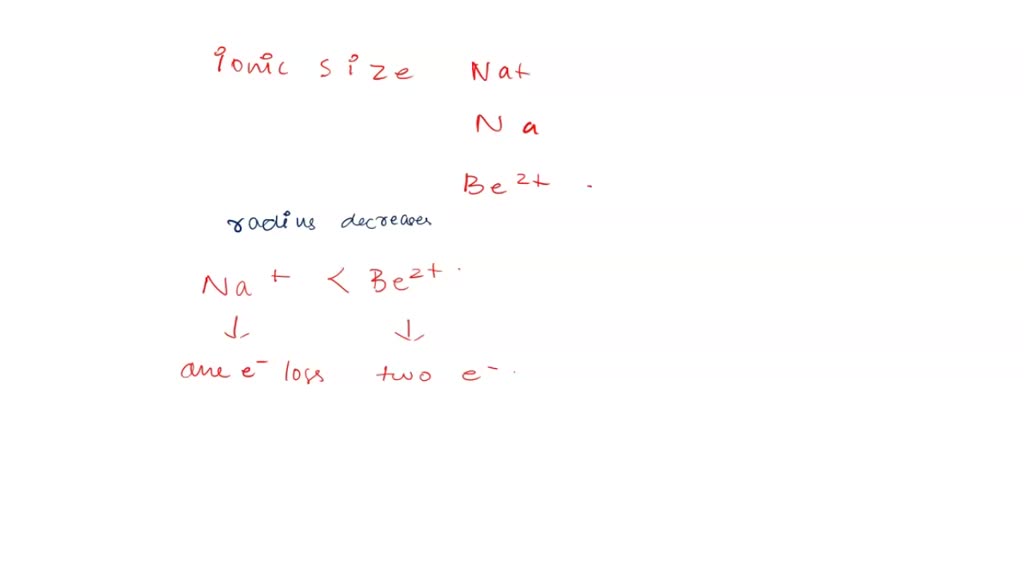 ionic size Na+
Na
Be2+ .
radius decreases
Na+ < Be2+ .
↓ ↓
one e- loss two e- .